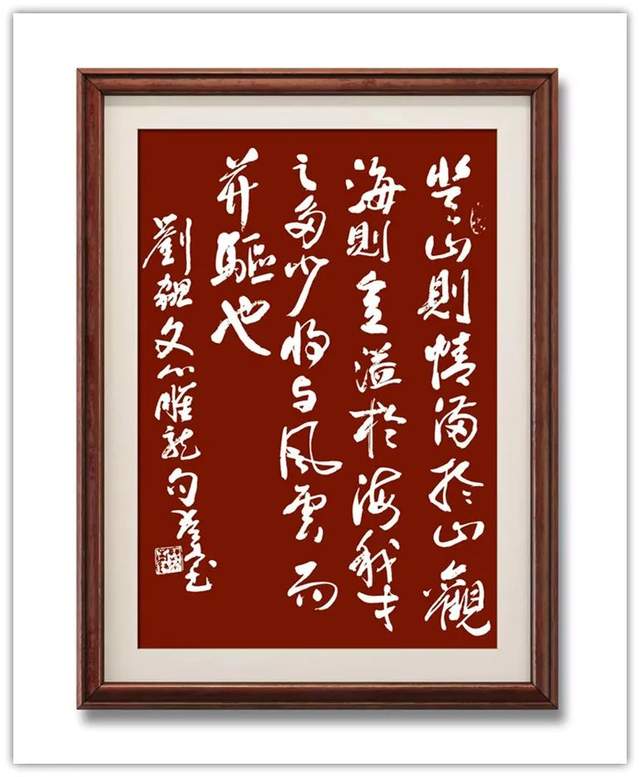 登山則情滿於山觀
海則意溢於海我才
之多少將與風雲而
並驅也
劉勰文心雕龍句